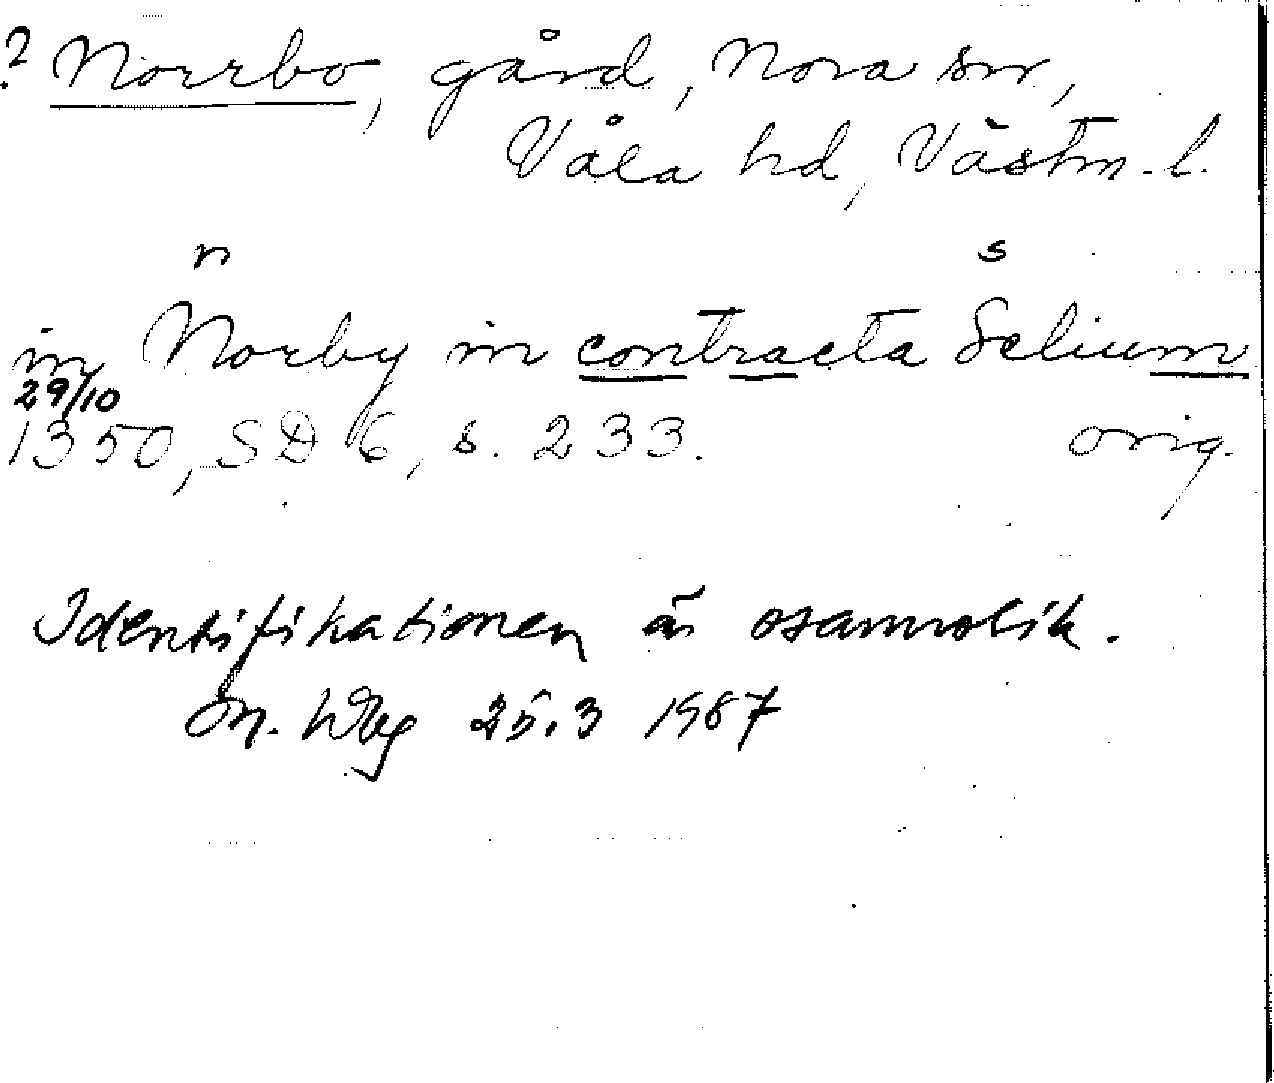 ? Norrbo, gård, Nora sn,
Våla hd, Västm. l.
n s
in Norby in contracta Selium
29/10
1350, SD 6, s. 233. orig.
Identifikationen är osannolik.
M. Wbg 25.3 1987